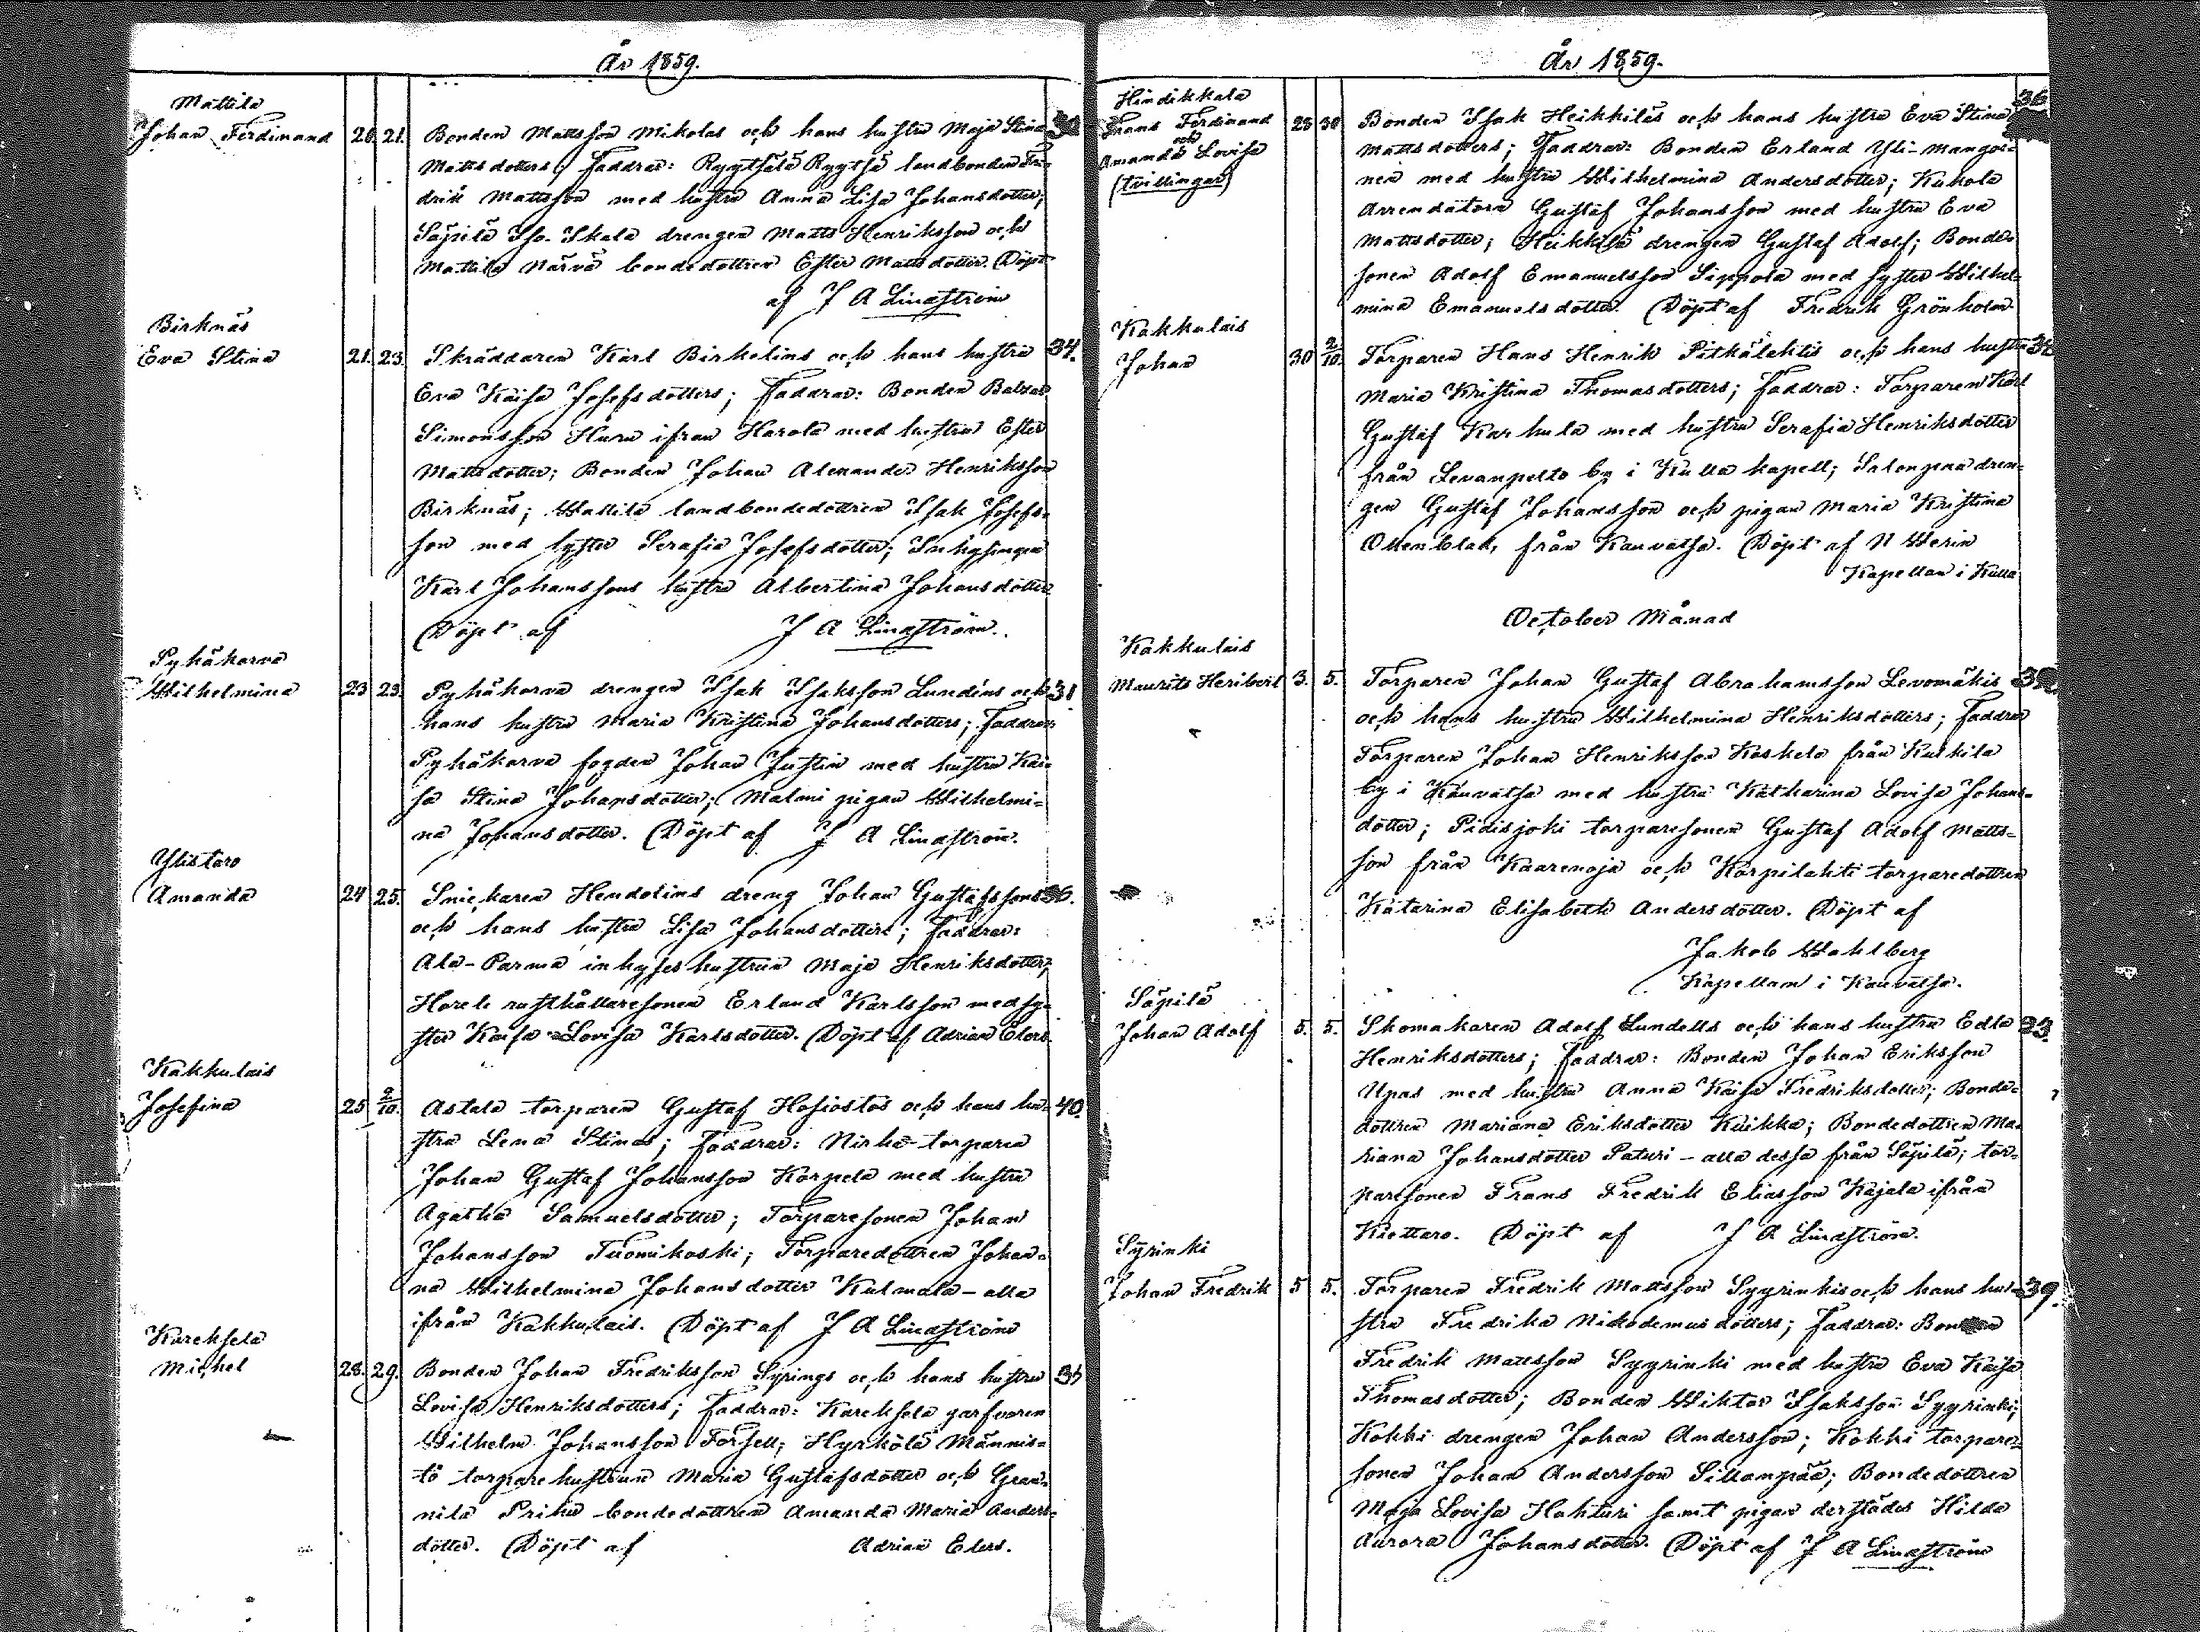 År 1859.
Mattila
Johan Ferdinand 20. 21. Bonden Mattsson Mikolas och hans hustru Maja Stina
Mattsdotters; Faddrar: Ryytsälä Ryytsä landbonden Fre-
drik Mattsson med hustru Anna Lisa Johansdotter;
Säpilä Iso-Skala drengen Matts Henriksson och
Mattila Närvä bondedottren Ester Mattsdotter. Döpt
af J A Lindström
Birknäs
Eva Stina 21. 23. Skräddaren Karl Birkelins och hans hustru 34.
Eva Kaisa Josefsdotters; Faddrar: Bonden Baltzar
Simonsson Huru ifrån Harola med hustru Ester
Mattsdotter; Bonden Johan Alexander Henriksson
Birknäs; Wallila landbondedottren Isak Josefs-
son med syster Serafia Josefsdotter; Inhysingen
Karl Johanssons hustru Albertina Johansdotter
Döpt af J A Lindström.
Pyhäkorva
Wilhelmina 23 23. Pyhäkorva drengen Isak Isaksson Lundéns och 31
hans hustru Maria Kristina Johansdotters; Faddrar:
Pyhäkorva fogden Johan Justin med hustru Kai-
sa Stina Johansdotter; Malmi pigan Wilhelmi-
na Johansdotter. Döpt af J A Lindström.
Ylistaro
Amanda 24 25. Snickaren Hendelins dreng Johan Gustafssons 36.
och hans hustru Lisa Johansdotters; Faddrar:
Ala-Parma inhyses hustrun Maja Henriksdotter;
Hareli rusthållaresonen Erland Karlsson med sy-
ster Kaisa Lovisa Karlsdotter. Döpt af Adrian Elers.
Kakkulais
Josefina 25 2/10. Astala torparen Gustaf Hosiostos och hans hu- 40.
stru Lena Stinas; Faddrar: Nirha-torparen
Johan Gustaf Johansson Korpela med hustru
Agatha Samuelsdotter; Torparesonen Johan
Johansson Tuomikoski; Torparedottren Johan-
na Wilhelmina Johansdotter Kulmala - alla
ifrån Kakkulais. Döpt af J A Lindström
Kareksela
Michel 28. 29. Bonden Johan Fredriksson Syrings och hans hustru 35
Lovisa Henriksdotters; Faddrar: Kareksela garfvaren
Wilhelm Johansson Forsell; Hyrkölä Männis-
tö torparehustrun Maria Gustafsdotter och Gran-
nila Priku bondedottren Amanda Maria Anders-
dotter. Döpt af Adrian Elers.
År 1859.
Hindikkala 36
Frans Ferdinand
och
Amanda Lovisa
(tvillingar) 28 30 Bonden Isak Heikkiläs och hans hustru Eva Stina
Mattsdotters; Faddrar: Bonden Erland Yli-Mangoi-
nen med hustru Wilhelmina Andersdotter; Kukola
Arrendatorn Gustaf Johansson med hustru Eva
Mattsdotter; Heikkilä drengen Gustaf Adolf; Bonde-
sonen Adolf Emanuelsson Sippola med syster Wilhel-
mina Emanuelsdotter. Döpt af Fredrik Grönholm
Kakkulais
Johan 30 2/10. Torparen Hans Henrik Pitkälehtis och hans hustru
Maria Kristina Thomasdotters; Faddrar: Torparen Karl
Gustaf Karhula med hustru Serafia Henriksdotter
från Levanpelto by i Kulla kapell; Salongna dren-
gen Gustaf Johansson och pigan Maria Kristina
Ottenblad, från Kauvatsa. Döpt af N Werin
Kapellan i Kulla
October Månad
Kakkulais
Maurits Heribert 3. 5. Torparen Johan Gustaf Abrahamsson Levomäkis
och hans hustru Wilhelmina Henriksdotters; Faddrar
Torparen Johan Henriksson Koskelo från Kulkila
by i Kauvatsa med hustru Katharina Lovisa Johans-
dotter; Pidisjoki torparesonen Gustaf Adolf Matts-
son från Kaarenoja och Korpilahti torparedottren
Katarina Elisabeth Andersdotter. Döpt af
Jakob Wahlberg
Kapellan i Kauvatsa.
Säpilä
Johan Adolf 5. 5. Skomakaren Adolf Lundells och hans hustru Edla 23.
Henriksdotters; Faddrar: Bonden Johan Eriksson
Upas med hustru Anna Kaisa Fredriksdotter; Bonde-
dottren Mariana Eriksdotter Kuikka; Bondedottren Ma-
riana Johansdotter Paturi - alla dessa från Säpilä; tor-
paresonen Frans Fredrik Eliasson Kajala ifrån
Kiettare. Döpt af J A Lindström.
Syrinki
Johan Fredrik 5 5. Torparen Fredrik Mattsson Syyrinkis och hans hu- 39.
stru Fredrika Nikodemusdotters; Faddrar: Bonden
Fredrik Mattsson Syyrinki med hustru Eva Kaisa
Thomasdotter; Bonden Wiktor Isaksson Syyrinki;
Kokki drengen Johan Andersson; Kokki torpare-
sonen Johan Andersson Sillanpää; Bondedottren
Maja Lovisa Hahturi samt pigan derstädes Hilda
Aurora Johansdotter. Döpt af J A Lindström